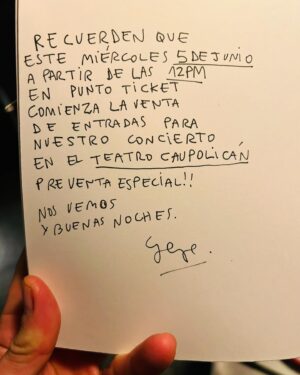 RECUERDEN QUE
ESTE MIÉRCOLES 5 DE JUNIO
A PARTIR DE LAS 12PM
EN PUNTO TICKET
COMIENZA LA VENTA
DE ENTRADAS PARA
NUESTRO CONCIERTO
EN EL TEATRO CAUPOLICÁN
PREVENTA ESPECIAL!!
NOS VEMOS
Y BUENAS NOCHES.